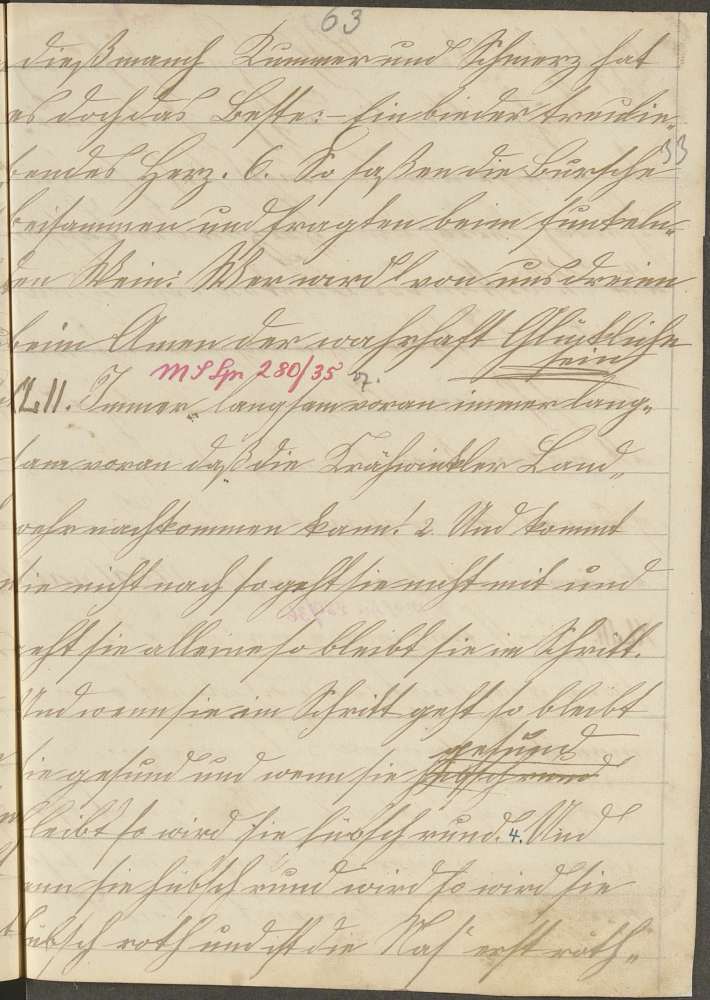 63
dieß manch Kummer und Schmerz hat
es doch das Beste:- Ein bieder treulie„
33
bendes Herz. 6. So saßen die Bursche
beisammen und fragten beim funkeln„
den Wein: Wer ward's von uns dreien
beim Amen der wahrhaft Glückliche
sein
MS Lpr 280/35
II. Immer langsam voran immer lang„
sam voran daß die Krähwinkler Land„
wehr nachkommen kann! 2 Und kommt
sie nicht nach so geht sie nicht mit und
geht sie alleine so bleibt sie im Schritt.
Und wenn sie im Schritt geht so bleibt
gesund
sie gesund und wenn sie hübsch rund
bleibt so wird sie hübsch rund. 4. Und
wenn sie hübsch rund wird so wird sie
hübsch roth und ist die Nas' erst röth„